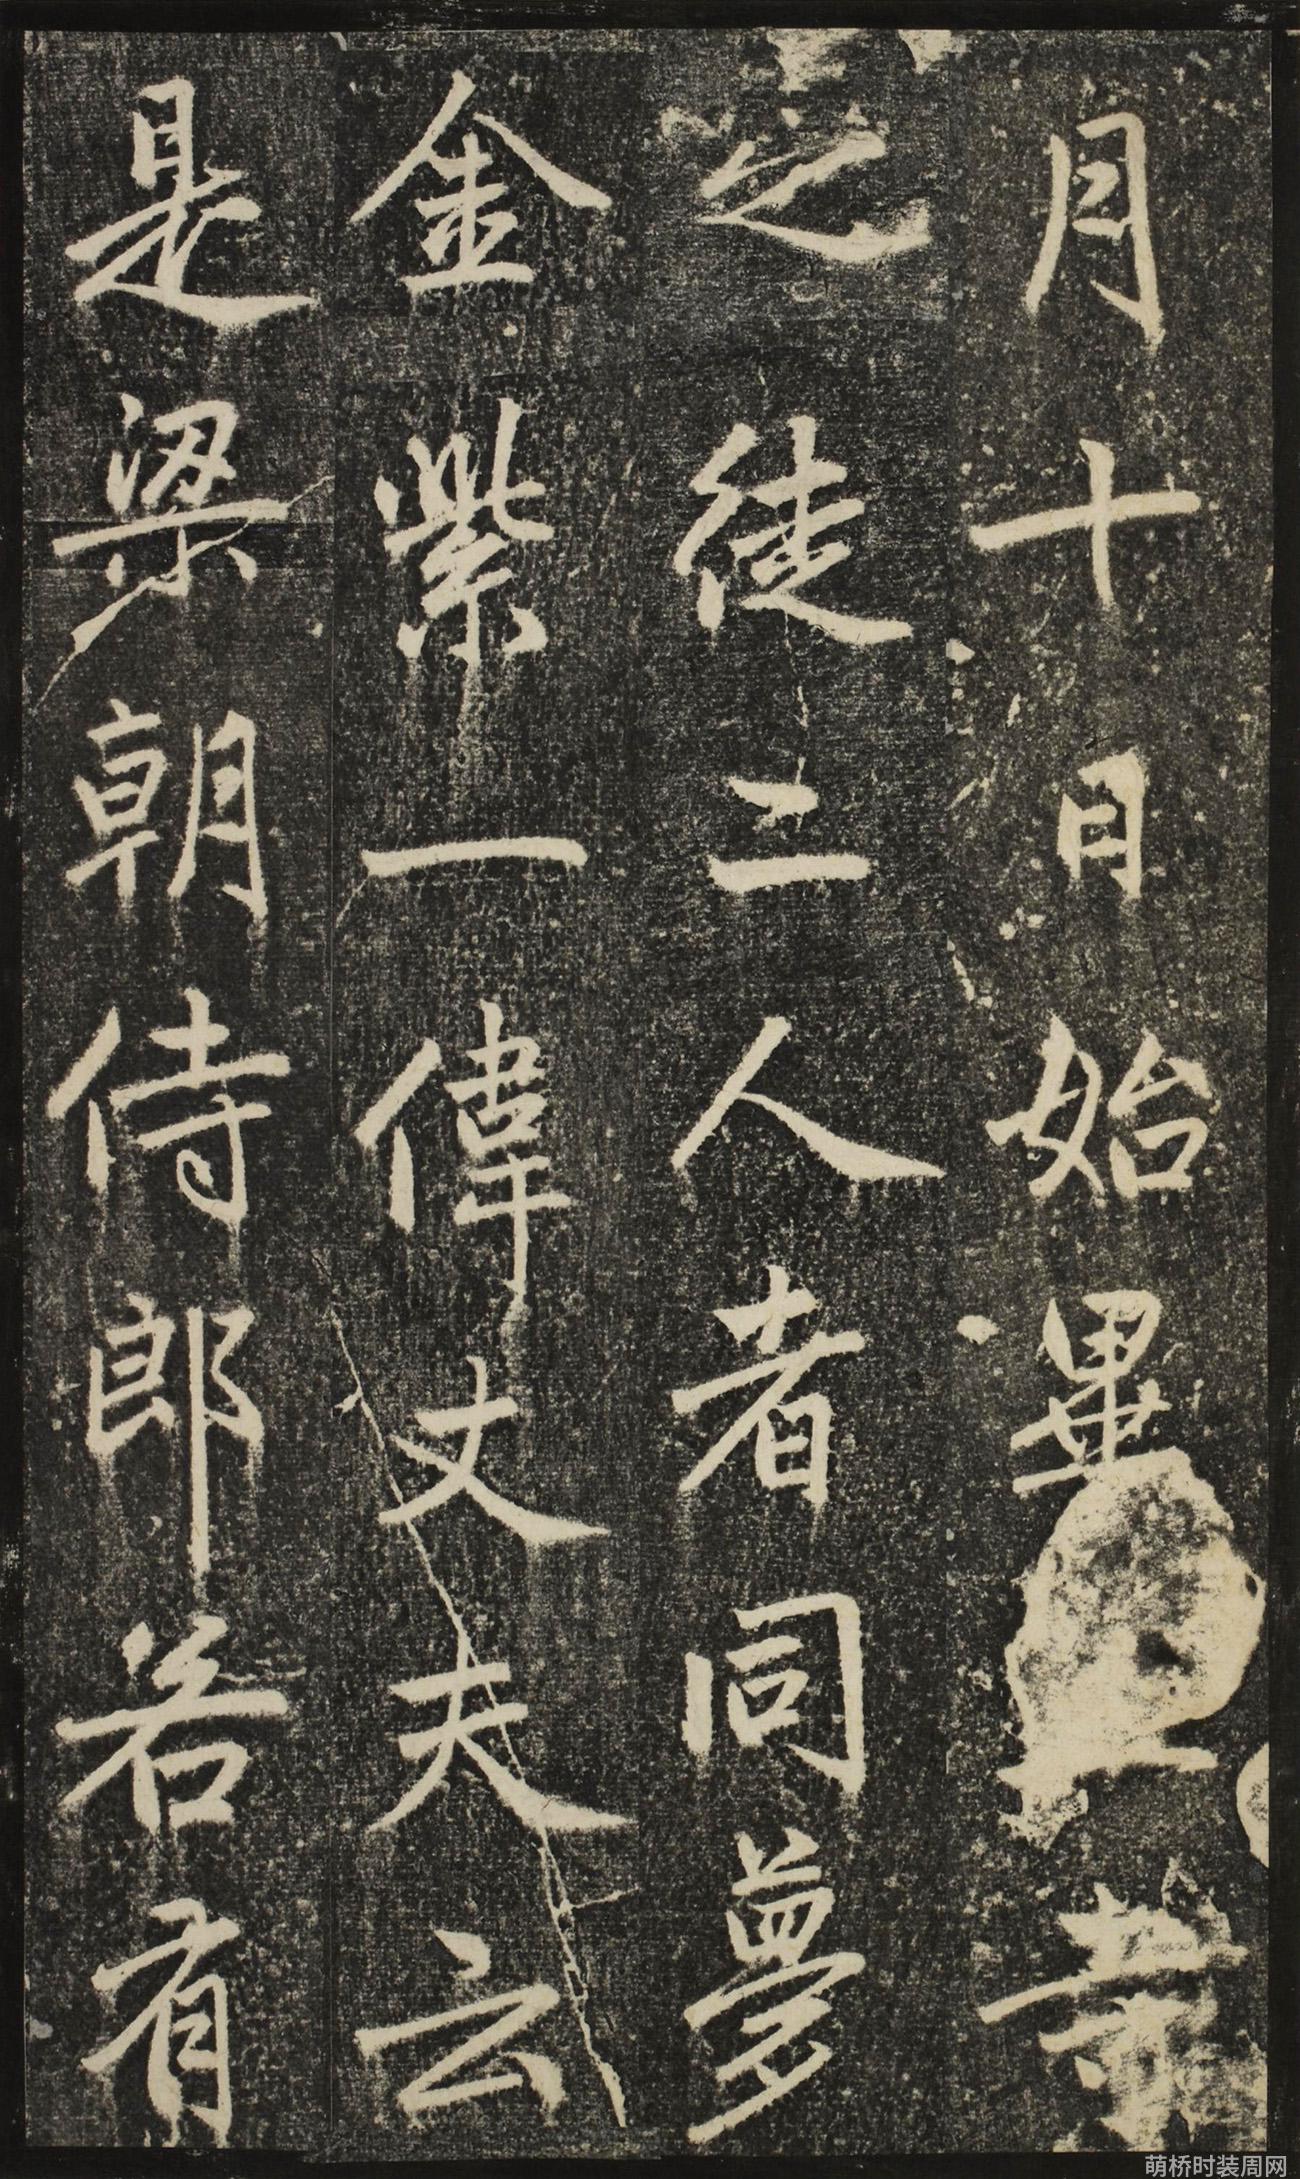 月十日始畢
之徒二人者同夢
金紫一偉丈夫云
是梁朝侍郎若有
萌桥时装周网